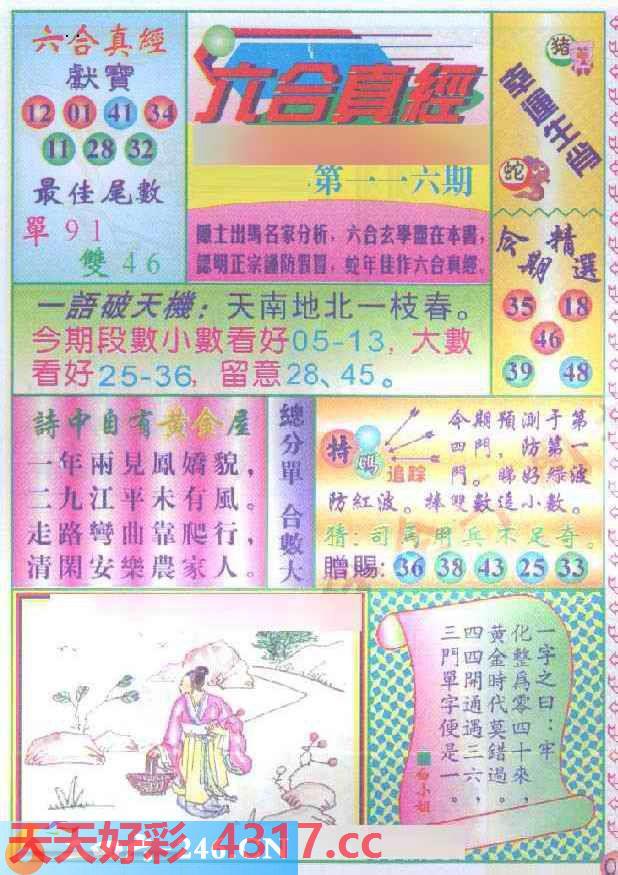 六合真經
獻寶
12 01 41 34
11 28 32
最佳尾數
單 91
雙 46
六合真經
第一一六期
隱士出馬名家分析，六合玄學盡在本書，
認明正宗謹防假冒，蛇年佳作六合真經。
猪
蛇
今期
精選
35 18
46
39 48
一語破天機：天南地北一枝春。
今期段數小數看好05-13，大數
看好25-36，留意28、45。
詩中自有黃金屋
一年兩見鳳嬌貌，
二九江平未有風。
走路彎曲靠爬行，
清閑安樂農家人。
總分單 合數大
特碼
追踪
今期預測于第
四門，防第一
門。睇好綠波
防紅波。捧雙數追小數。
猜：司馬用兵不足奇。
贈賜：36 38 43 25 33
一字之曰：牢
化整爲零四十來，
黃金時代莫錯過。
四四開通遇三六，
三門單字便是一。
白小姐
246.CN
天天好彩 4317.cc